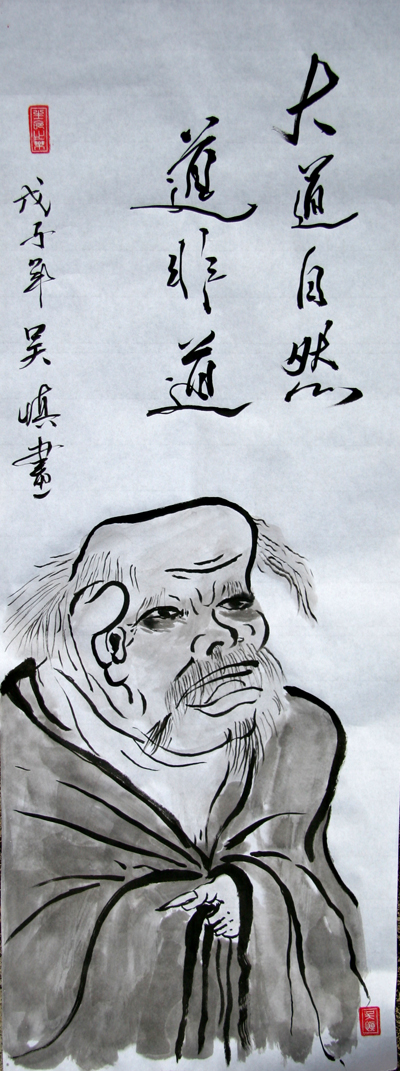 大道自然
道非道
戊子年吴慎畫